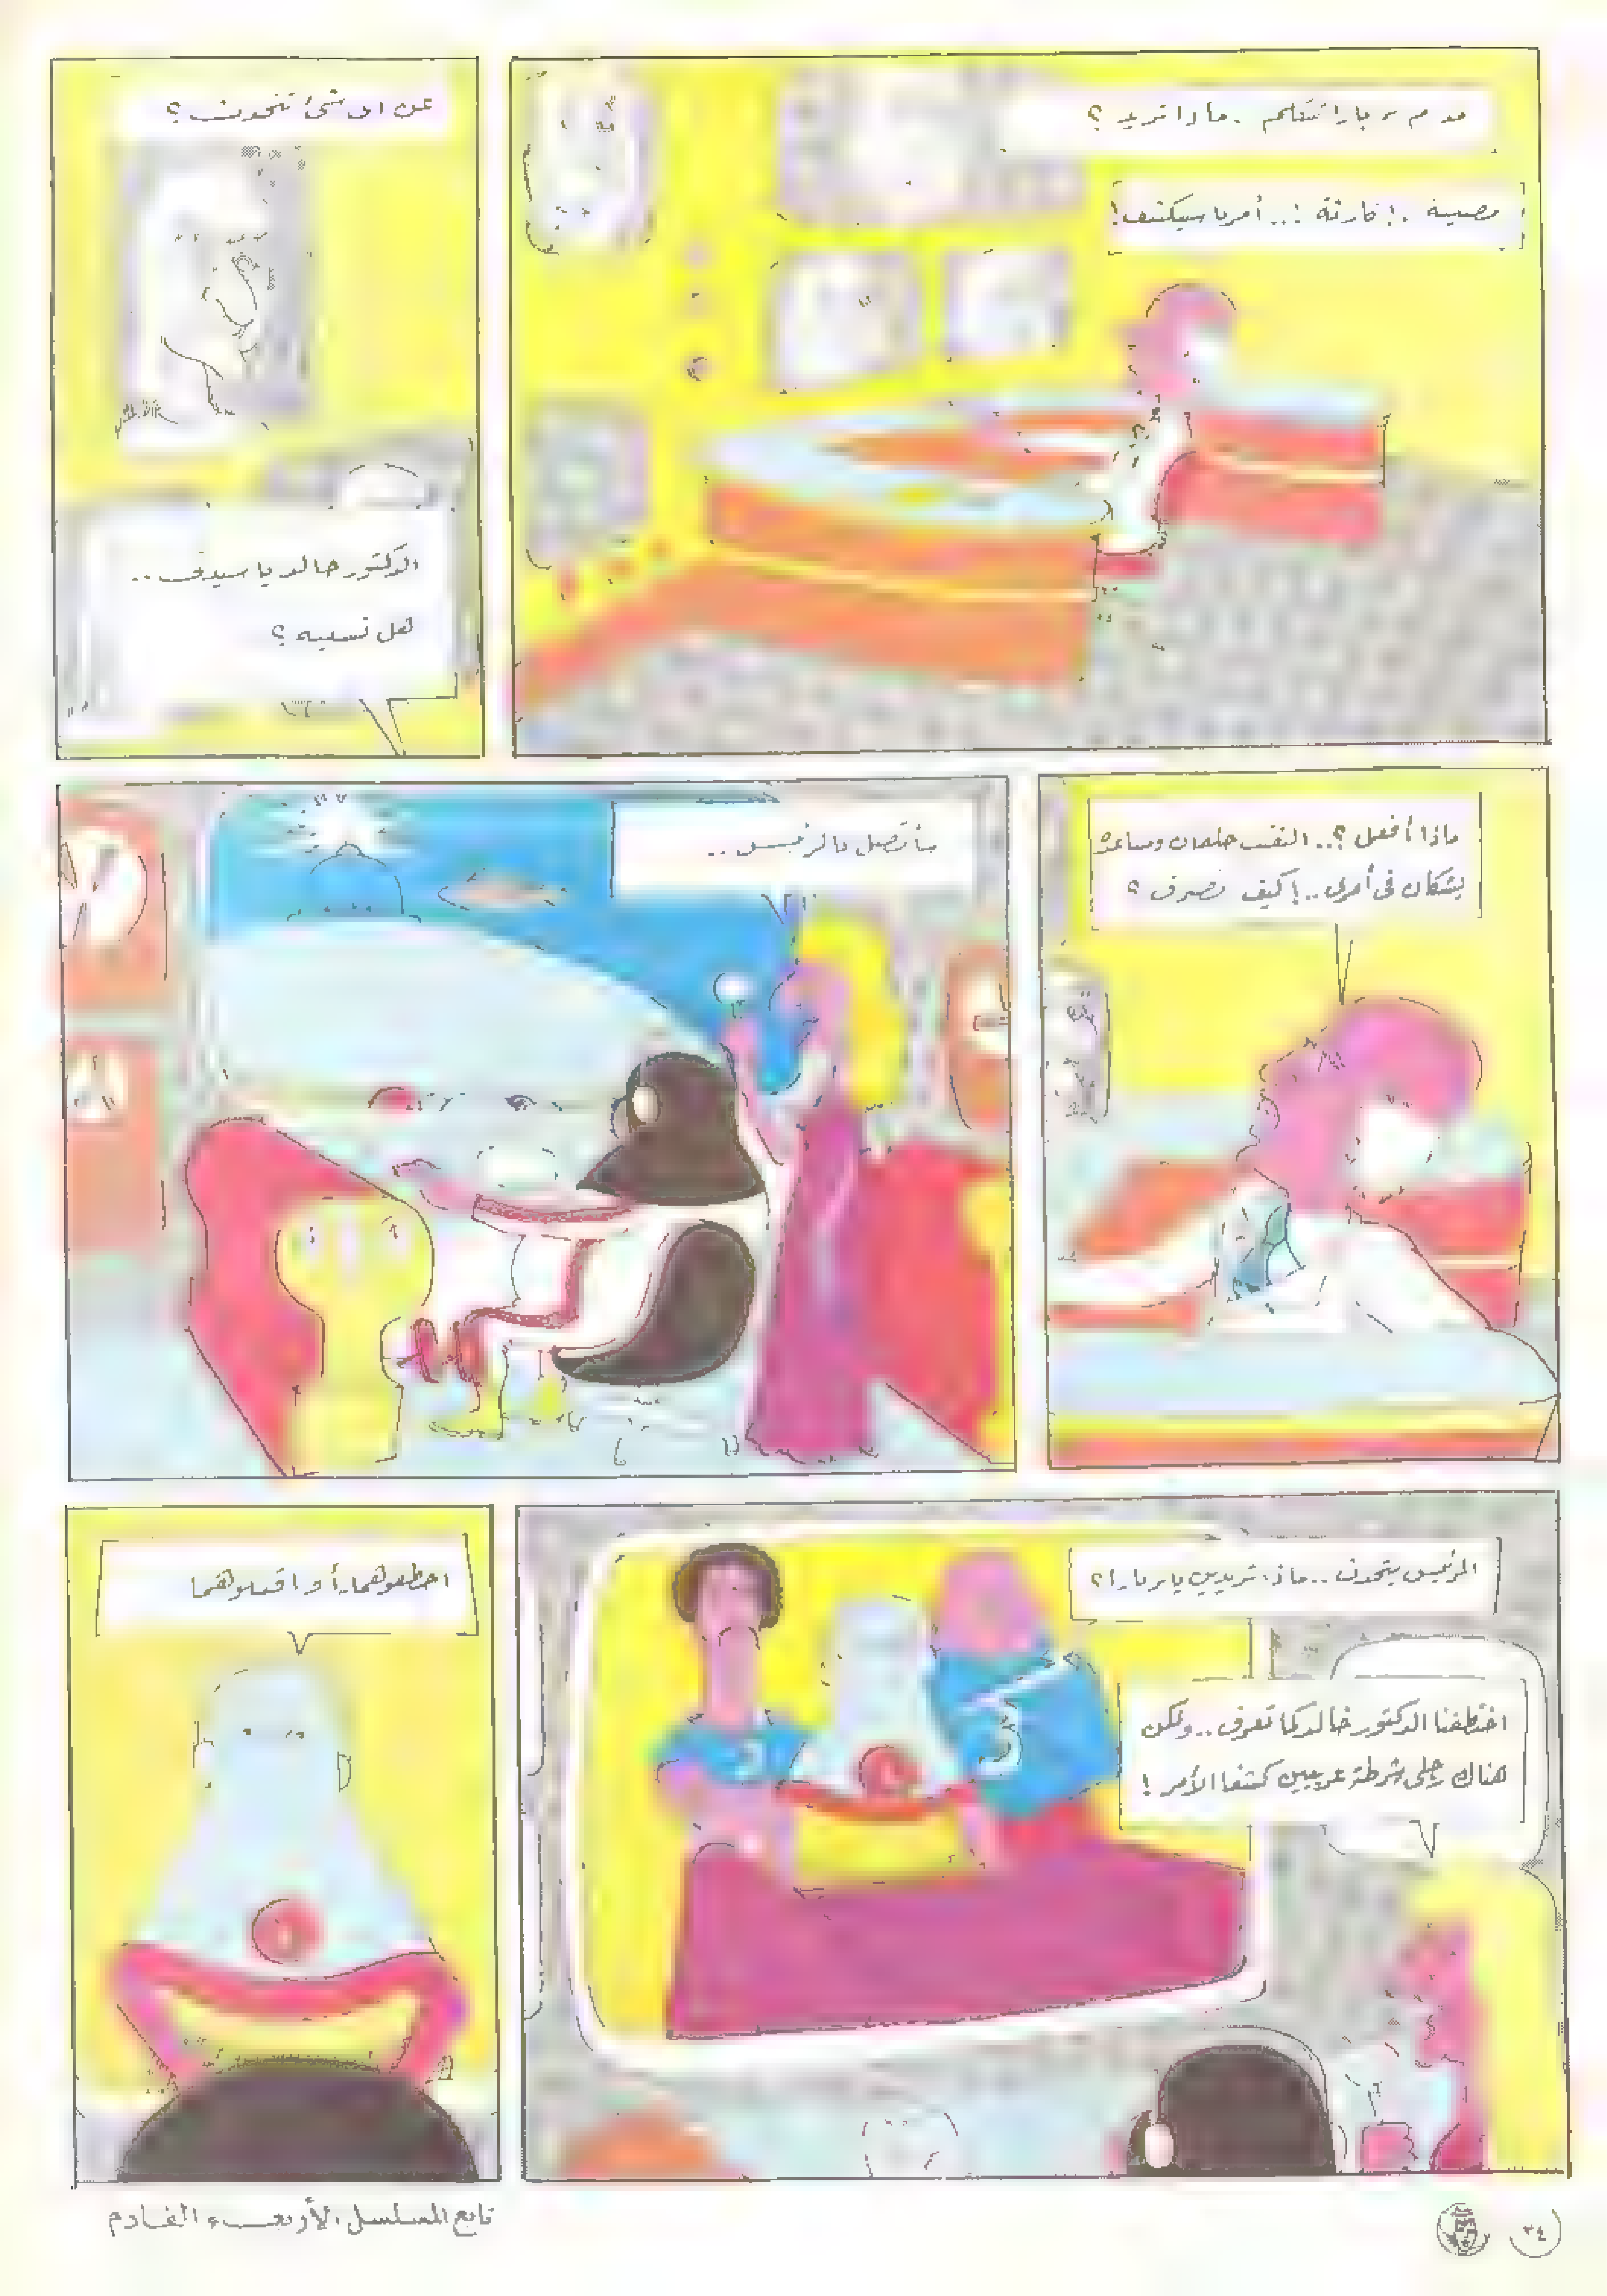 مدام بربارا تتكلم . ماذا تريد ؟
مصيبة .! كارثة !.. أمرنا سيكتشف !
عن أى شئ تتحدث ؟
الدكتور خالد يا سيدى ..
هل نسيته ؟
ماذا أفعل ؟.. النقيب خلفان ومساعده
يشكان فى أمرى ..! كيف نصرف ؟
سأتصل بالرئيس ..
الرئيس يتحدث .. ماذا تريدين يا بربارا ؟
اختطفنا الدكتور خالد كما تعرف .. ولكن
هناك رجلى شرطة عربيين كشفا الأمر !
اخطفوهما أو اقتلوهما
تابع المسلسل الأربعاء القادم
٣٤